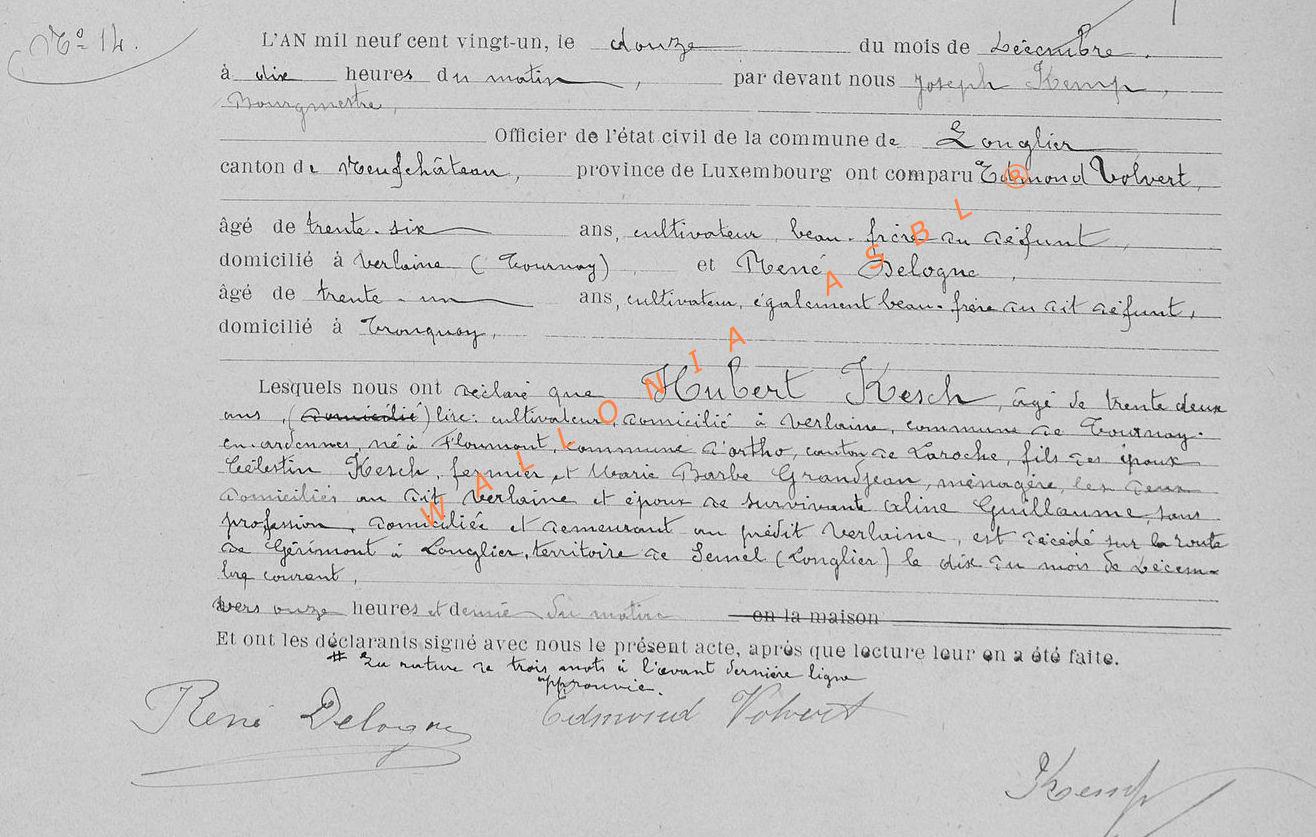 N° 14.
L'AN mil neuf cent vingt-un, le douze du mois de Décembre,
à dix heures du matin, par devant nous Joseph Kemp,
Bourgmestre,
Officier de l'état civil de la commune de Longlier
canton de Neufchâteau, province de Luxembourg ont comparu Edmond Volvert,
âgé de trente-six ans, cultivateur, beau-frère du défunt,
domicilié à Verlaine (Tournay) et René Delogne,
âgé de trente-un ans, cultivateur, également beau-frère du dit défunt,
domicilié à Tronquoy,
Lesquels nous ont déclaré que Hubert Kesch, âgé de trente deux
ans, (domicilié) lire: cultivateur, domicilié à Verlaine, commune de Tournay-
en-ardennes, né à Floumont, commune d'ortho, canton de Laroche, fils des époux
Célestin Kesch, fermier et Marie Barbe Grandjean, ménagère, les deux
domiciliés au dit Verlaine et époux de survivante Aline Guillaume, sans
profession, domiciliée et demeurant au prédit Verlaine, est décédé sur la route
de Gérimont à Longlier, territoire de Semel (Longlier) le dix du mois de Décem-
bre courant,
vers onze heures et demie du matin en la maison
Et ont les déclarants signé avec nous le présent acte, après que lecture leur en a été faite.
# La rature de trois mots à l'avant dernière ligne
approuvée.
René Delogne Edmond Volvert
Kemp
WALLONIA ASBL ®